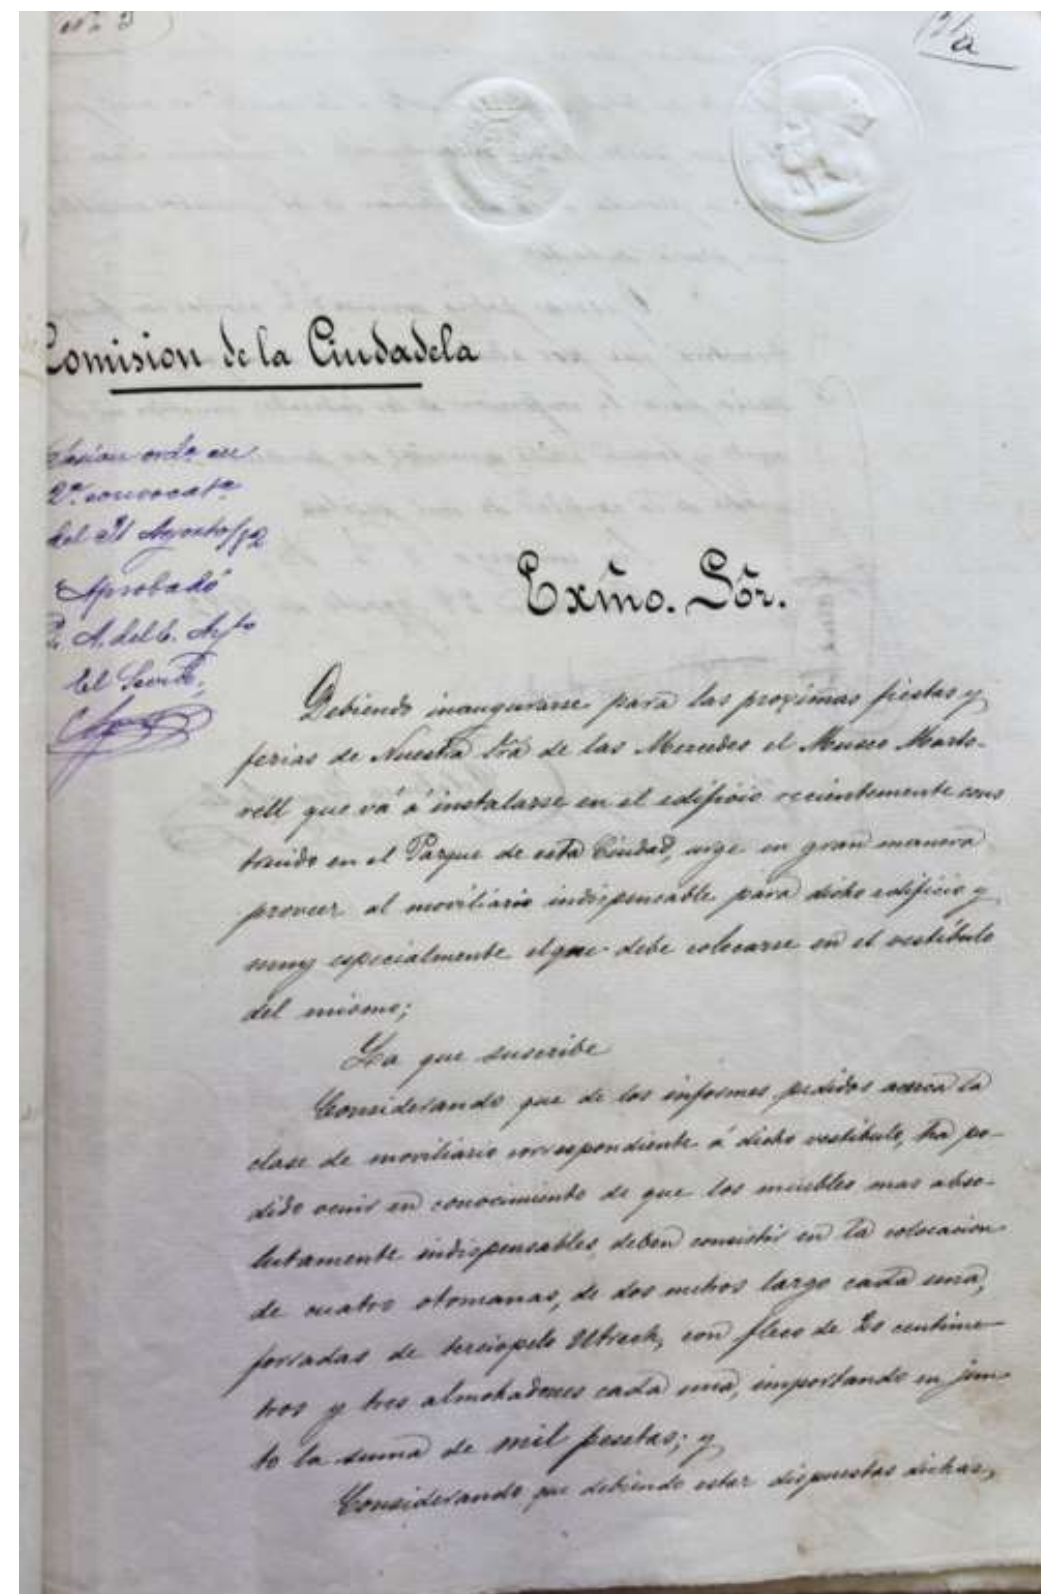 Nº 3
a
Comision de la Ciudadela
Sesion ordª en
2ª convocatª
del 31 Agosto/82
Aprobado
P. A. del E. Ayto
El Secreto,
Exm̃o. Sõr.
Debiendo inaugurarse para las proximas fiestas y
ferias de Nuestra Srã de las Mercedes el Museo Marto-
rell que vá á instalarse en el edificio recientemente cons
truido en el Parque de esta Ciudad, urge en gran manera
proveer al moviliario indispensable para dicho edificio y
muy especialmente el que debe colocarse en el vestíbulo
del mismo;
La que suscribe
Considerando que de los informes pedidos acerca la
clase de moviliario correspondiente á dicho vestíbulo, ha po-
dido venir en conocimiento de que los muebles mas abso-
lutamente indispensables, deben consistir en la colocacion
de cuatro otomanas, de dos metros largo cada una,
forradas de terciopelo Utrech, con fleco de 20 centime-
tros y tres almohadones cada una, importando en jun-
to la suma de mil pesetas; y
Considerando que debiendo estar dispuestas dichas